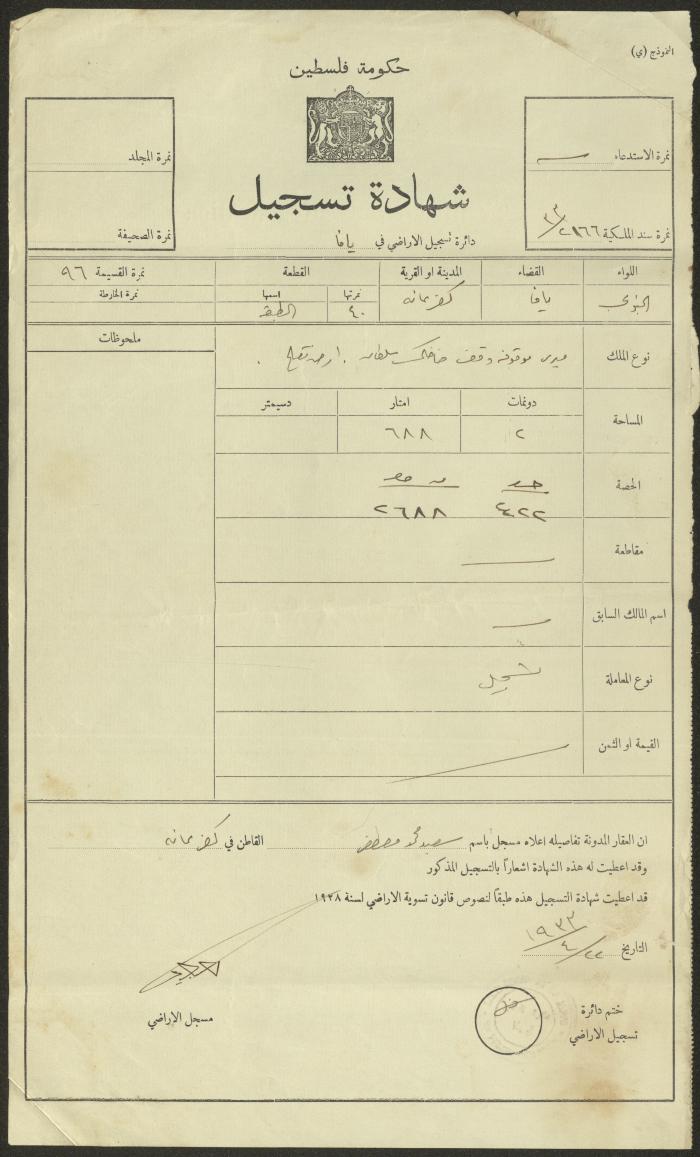 النموذج (ي)
حكومة فلسطين
نمرة الاستدعاء
نمرة سند الملكية ٢١٦٦/٣٣
نمرة المجلد
نمرة الصحيفة
شهادة تسجيل
دائرة تسجيل الاراضي في يافا
اللواء القضاء المدينة او القرية القطعة نمرة القسيمة ٩٦
نمرتها اسمها نمرة الخارطة
الجنوبي يافا كفر عانه ٤٠
نوع الملك ميري موقوفه وقف خاصكي سلطان
ملحوظات
المساحة
دونمات امتار دسيمتر
٢ ٦٨٨
الحصة
حصه من حصه
٢٦٨٨
مقاطعة
اسم المالك السابق
نوع المعاملة تسجيل
القيمة او الثمن
ان العقار المدونة تفاصيله اعلاه مسجل باسم سعيد محمد مصطفى القاطن في كفر عانه
وقد اعطيت له هذه الشهادة اشعاراً بالتسجيل المذكور
قد اعطيت شهادة التسجيل هذه طبقا لنصوص قانون تسوية الاراضي لسنة ١٩٢٨
التاريخ ٢٢/٤/١٩٣٣
ختم دائرة
تسجيل الاراضي
مسجل الاراضي